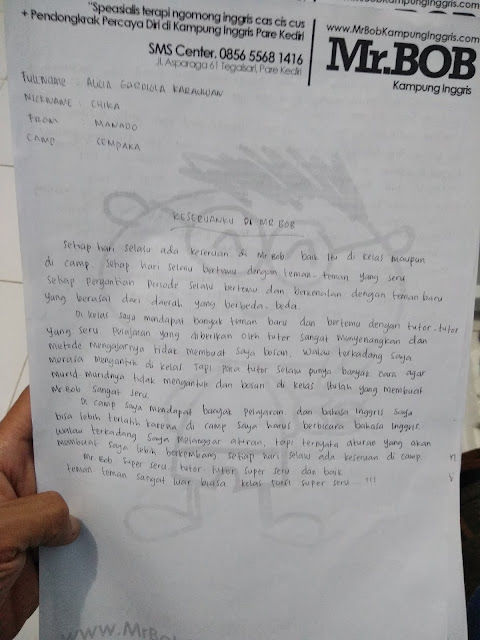 "Speasialis terapi ngomong inggris cas cis cus
+ Pendongkrak Percaya Diri di Kampung Inggris Pare Kediri
SMS Center. 0856 5568 1416
Jl. Asparaga 61 Tegalsari, Pare Kediri
www.MrBobKampungInggris.com
Mr.BOB
Kampung Inggris
FULL NAME : ALICIA GARDIOLA KARAUWAN
NICKNAME : CHIKA
FROM : MANADO
CAMP : CEMPAKA
KESERUANKU DI MR BOB
Setiap hari selalu ada keseruan di Mr Bob. baik itu di kelas maupun
di camp. Setiap hari selalu bertemu dengan teman-teman yang seru.
Setiap pergantian periode selalu bertemu dan berkenalan dengan teman baru
yang berasal dari daerah yang berbeda-beda.
Di kelas saya mendapat banyak teman baru dan bertemu dengan tutor-tutor
yang seru. Pelajaran yang diberikan oleh tutor sangat menyenangkan dan
metode mengajarnya tidak membuat saya bosan, walau terkadang saya
merasa mengantuk di kelas. Tapi para tutor selalu punya banyak cara agar
murid-muridnya tidak mengantuk dan bosan di kelas. Itulah yang membuat
Mr Bob sangat seru.
Di camp saya mendapat banyak pelajaran dan bahasa Inggris saya
bisa lebih terlatih karena di camp saya harus berbicara bahasa Inggris
walau terkadang saya melanggar aturan, tapi ternyata aturan yang akan
membuat saya lebih berkembang. Setiap hari selalu ada keseruan di camp
Mr. Bob super seru. tutor-tutor super seru dan baik
teman-teman sangat luar biasa kelas super seru...!!!
www.MrBo